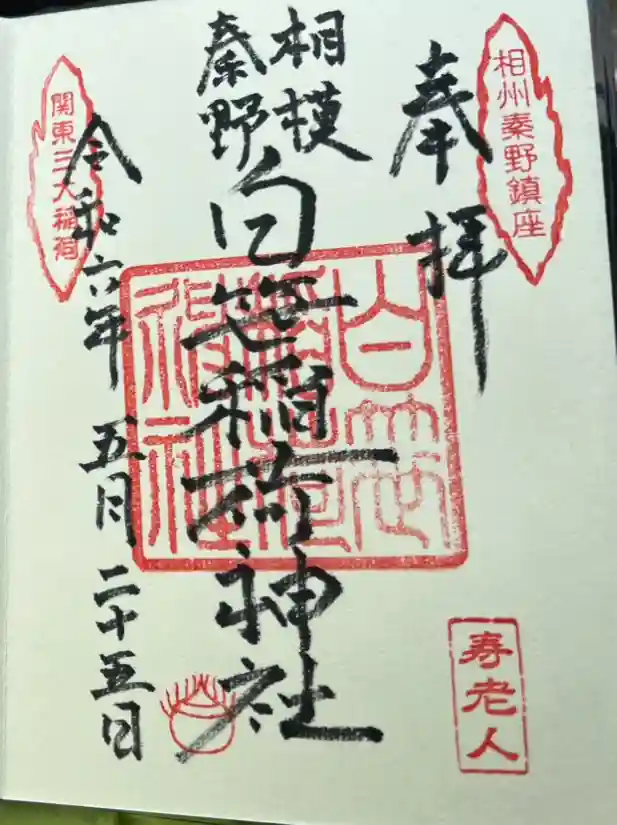 相州秦野鎮座
奉拝
相模
秦野
白笹稲荷神社
白笹
稲荷
神社
令和六年 五月 二十五日
関東三大稲荷
寿老人